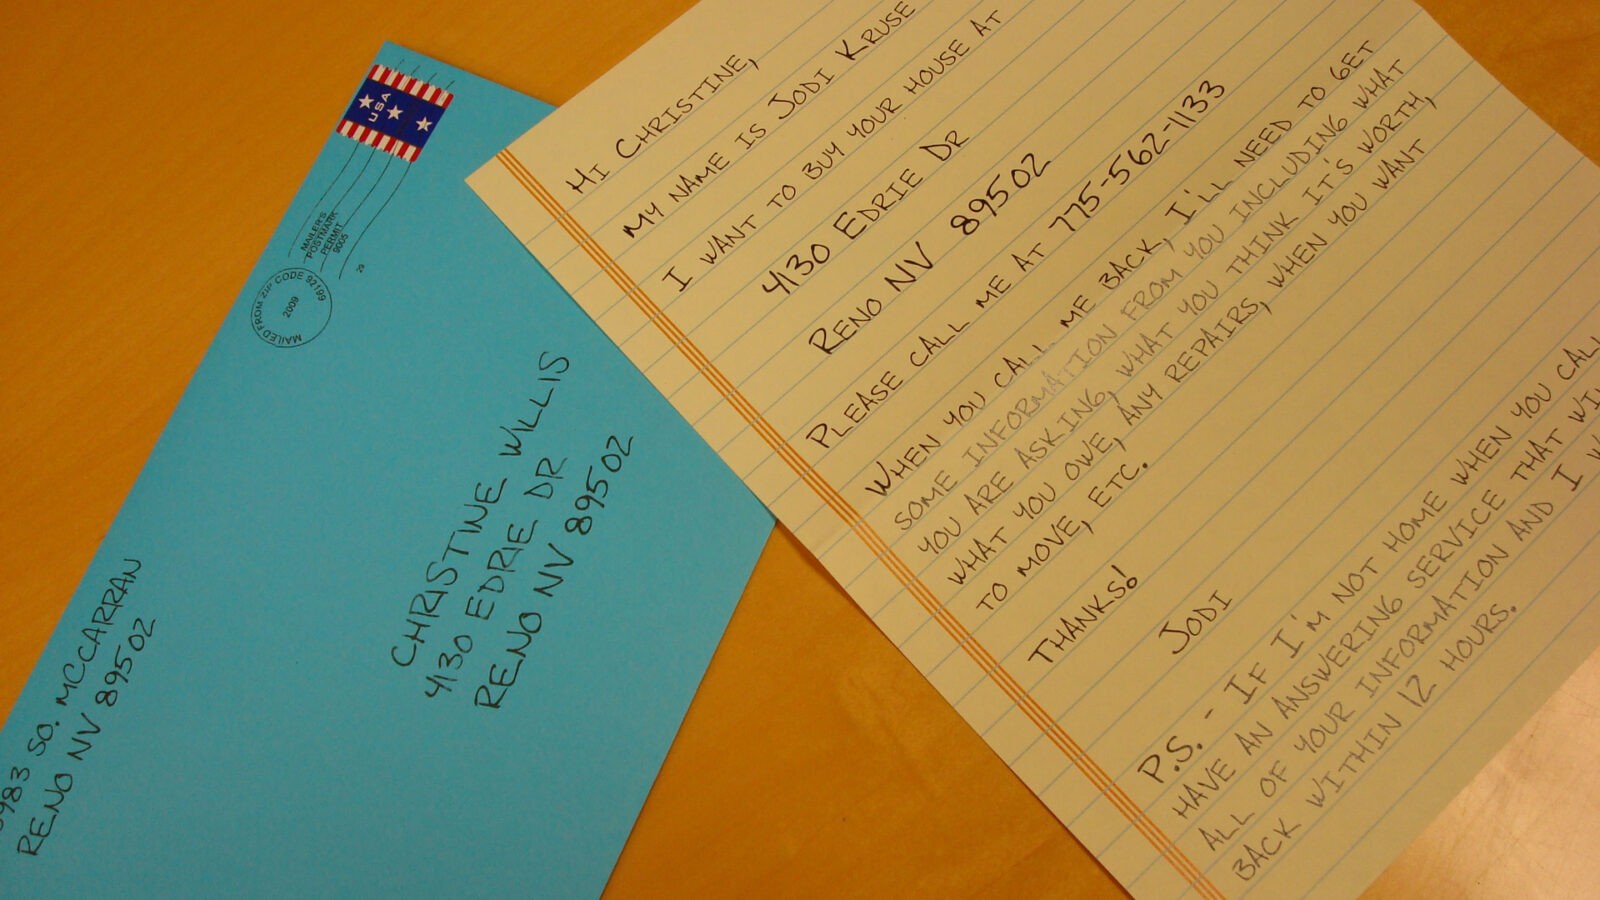 USA
MAILER'S
POSTMARK
PERMIT
9005
29
MAILED FROM ZIP CODE 92199
2009
CHRISTINE WILLIS
4130 EDRIE DR
RENO NV 89502
983 SO. MCCARRAN
RENO NV 89502
HI CHRISTINE,
MY NAME IS JODI KRUSE
I WANT TO BUY YOUR HOUSE AT
4130 EDRIE DR
RENO NV 89502
PLEASE CALL ME AT 775-562-1133
WHEN YOU CALL ME BACK, I'LL NEED TO GET
SOME INFORMATION FROM YOU INCLUDING WHAT
YOU ARE ASKING, WHAT YOU THINK IT'S WORTH,
WHAT YOU OWE, ANY REPAIRS, WHEN YOU WANT
TO MOVE, ETC.
THANKS!
JODI
P.S. - IF I'M NOT HOME WHEN YOU CALL
HAVE AN ANSWERING SERVICE THAT
ALL OF YOUR INFORMATION AND I
BACK WITHIN 12 HOURS.